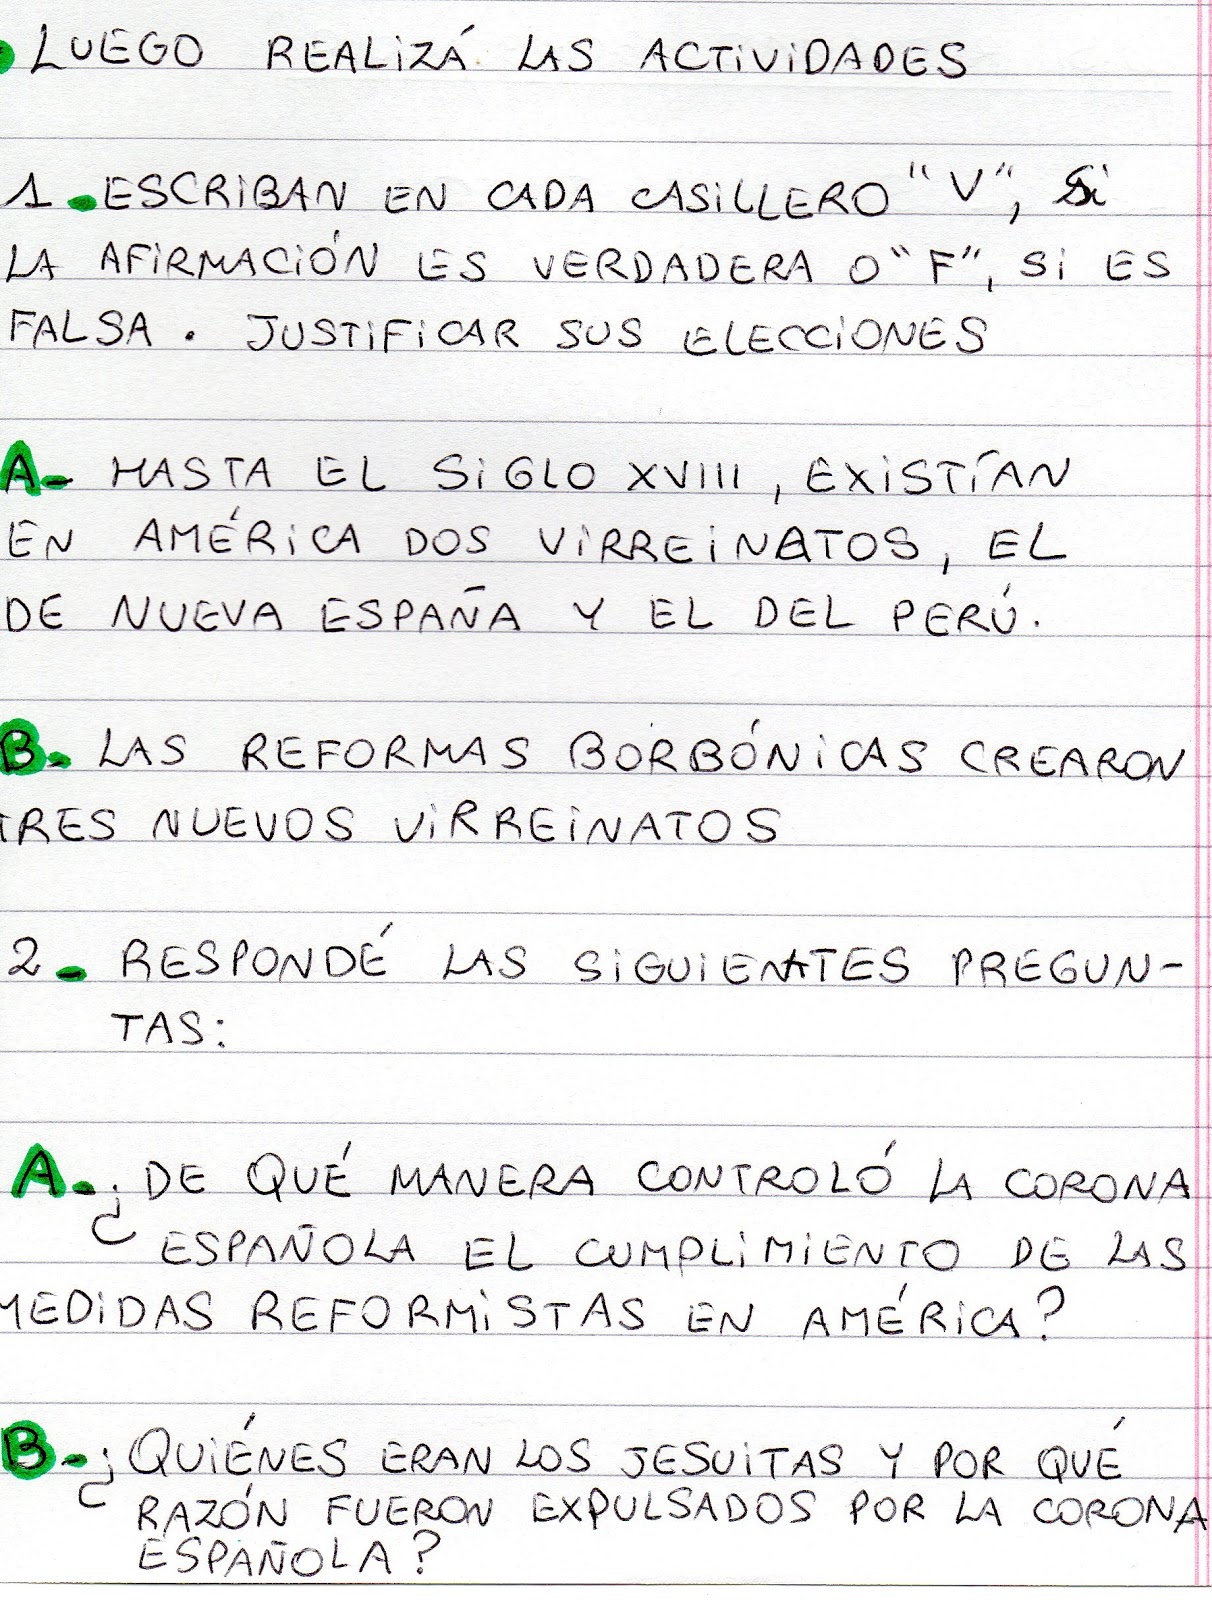 LUEGO REALIZÁ LAS ACTIVIDADES
1. ESCRIBAN EN CADA CASILLERO "V", Si
LA AFIRMACIÓN ES VERDADERA O "F", SI ES
FALSA. JUSTIFICAR SUS ELECCIONES
A- HASTA EL SIGLO XVIII, EXISTÍAN
EN AMÉRICA DOS VIRREINATOS, EL
DE NUEVA ESPAÑA Y EL DEL PERÚ.
B- LAS REFORMAS BORBÓNICAS CREARON
TRES NUEVOS VIRREINATOS
2- RESPONDÉ LAS SIGUIENTES PREGUN-
TAS:
A-¿DE QUÉ MANERA CONTROLÓ LA CORONA
ESPAÑOLA EL CUMPLIMIENTO DE LAS
MEDIDAS REFORMISTAS EN AMÉRICA?
B-¿QUIÉNES ERAN LOS JESUITAS Y POR QUÉ
RAZÓN FUERON EXPULSADOS POR LA CORONA
ESPAÑOLA?